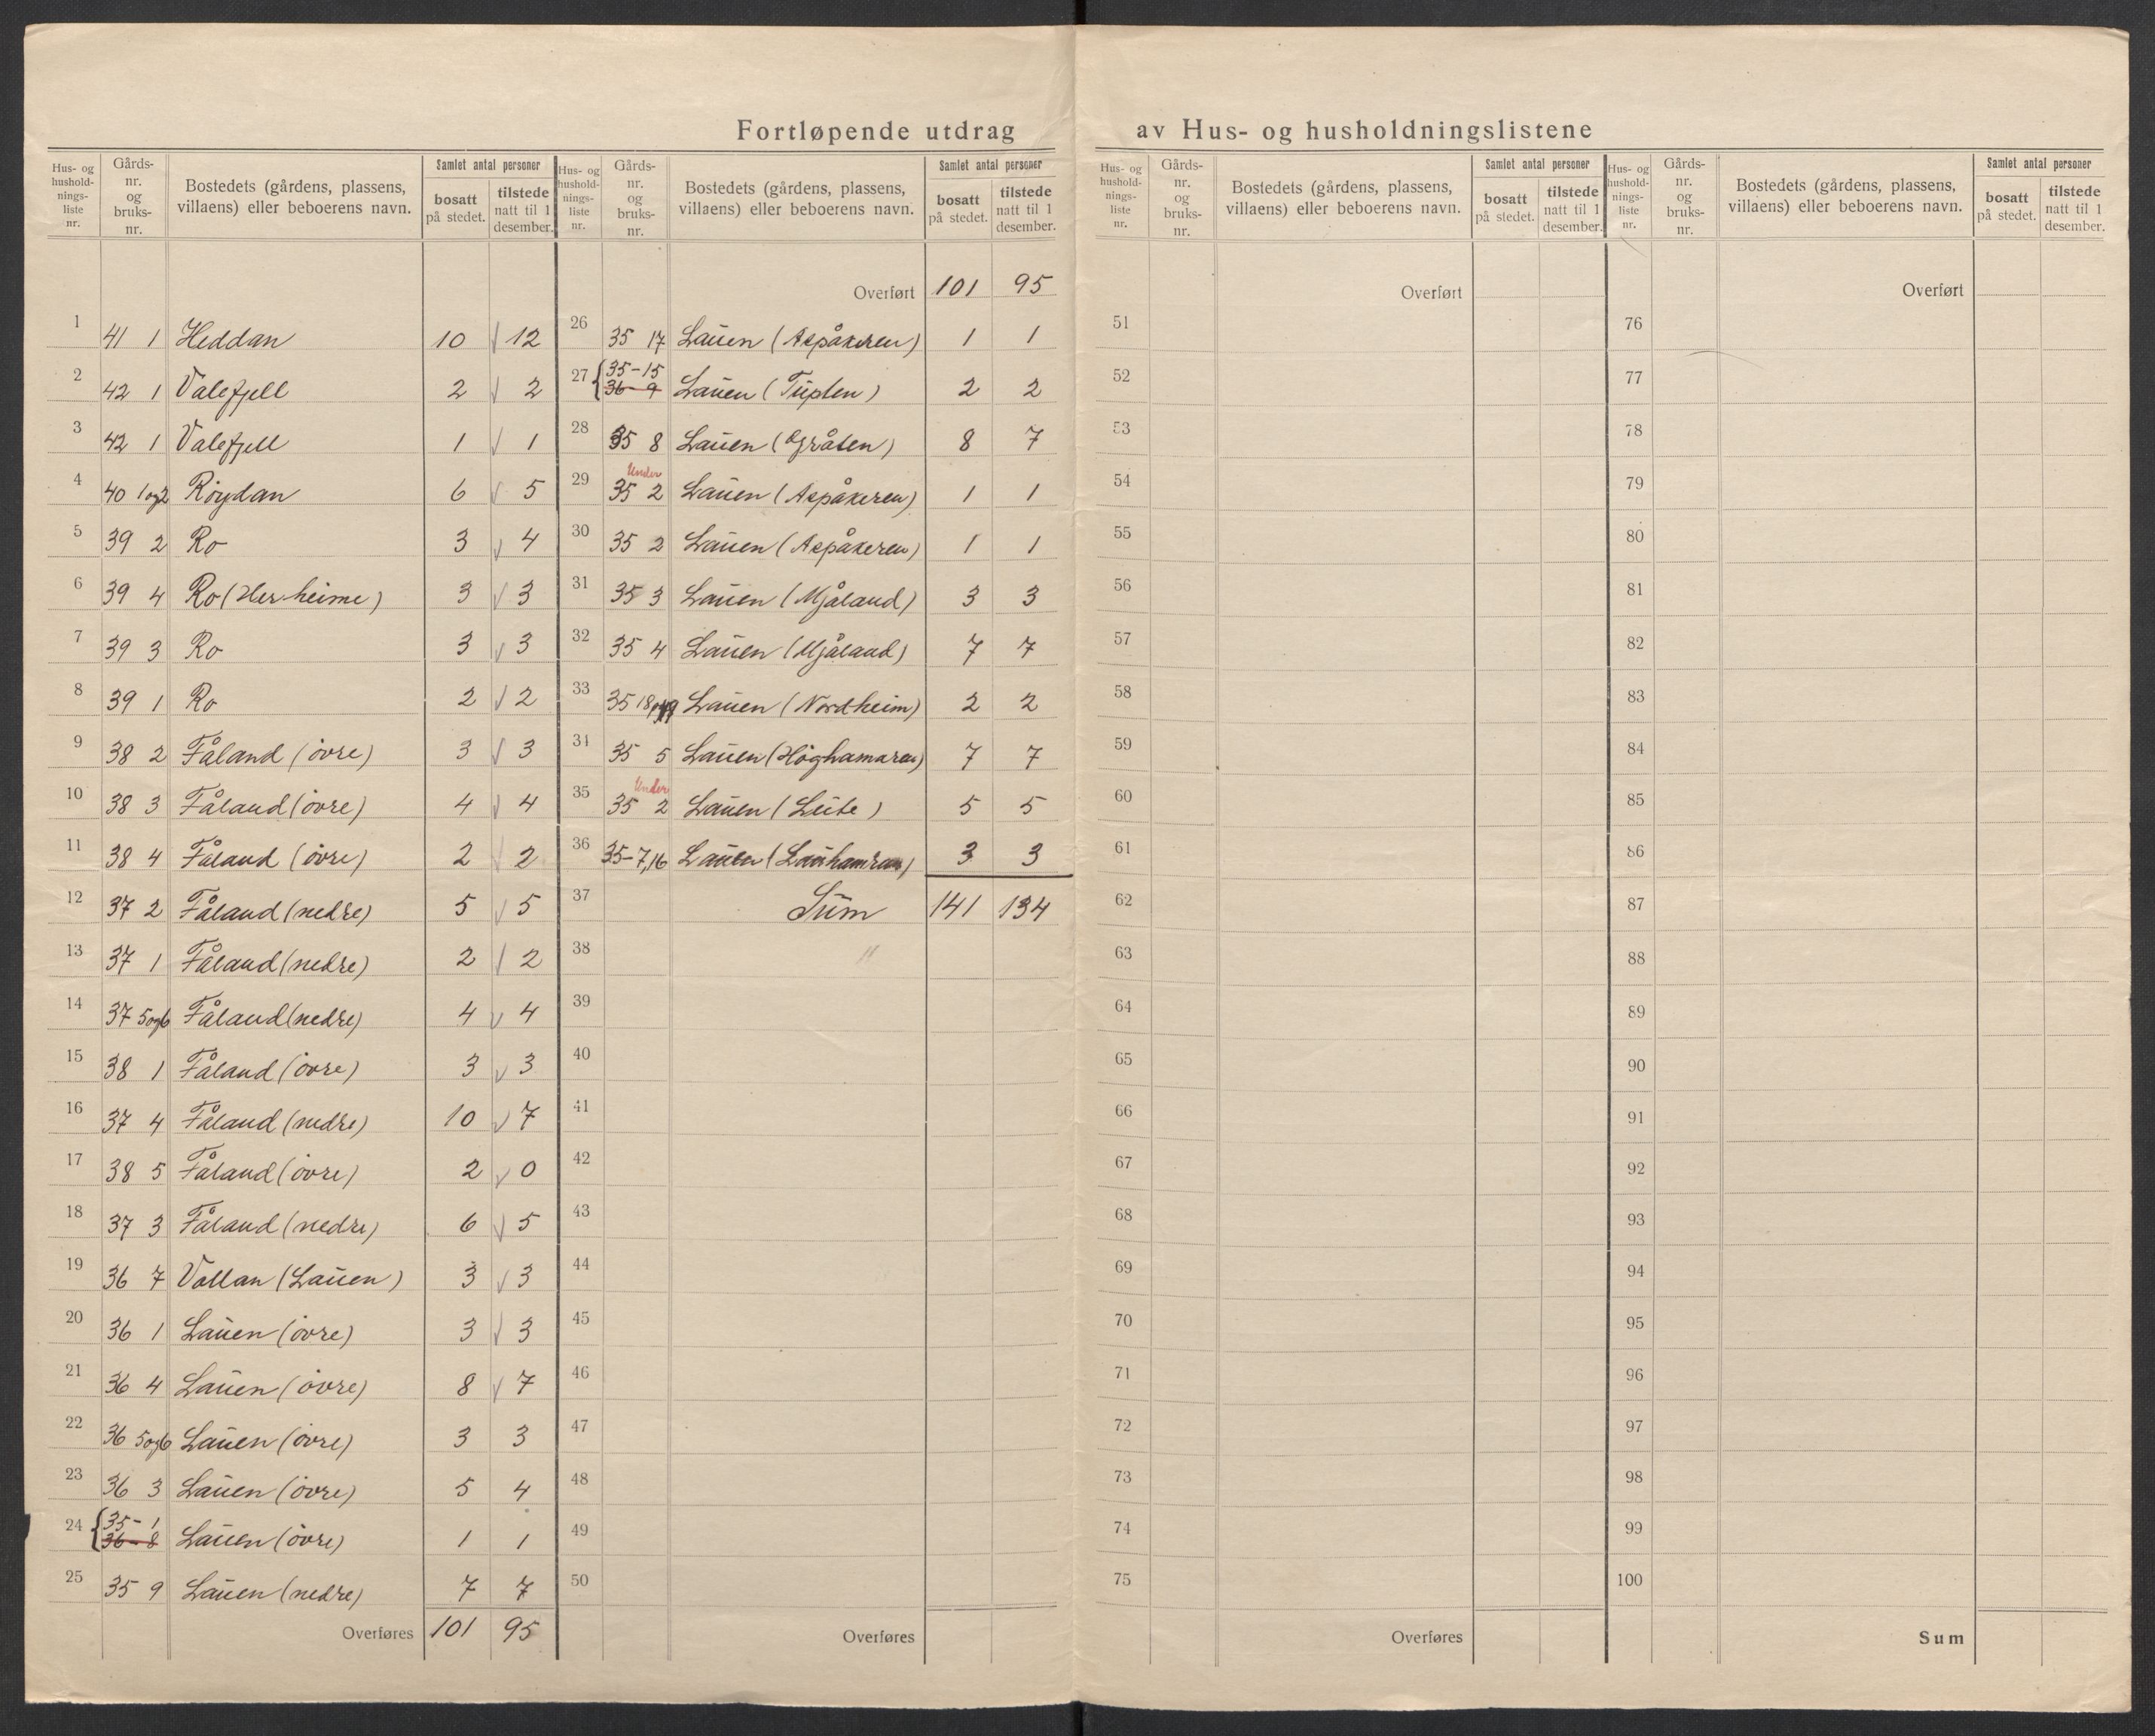 Fortløpende utdrag av Hus- og husholdningslistene
Hus- og hushold-nings-liste nr. Gårds-nr. og bruks-nr. Bostedets (gårdens, plassens, villaens) eller beboerens navn. Samlet antal personer bosatt på stedet. tilstede natt til 1 desember.
1 41 1 Heddan 10 √ 12
2 42 1 Valefjell 2 √ 2
3 42 1 Valefjell 1 √ 1
4 40 1og2 Röydan 6 √ 5
5 39 2 Ro 3 √ 4
6 39 4 Ro (Her-heime) 3 √ 3
7 39 3 Ro 3 √ 3
8 39 1 Ro 2 √ 2
9 38 2 Fåland (övre) 3 √ 3
10 38 3 Fåland (övre) 4 √ 4
11 38 4 Fåland (övre) 2 √ 2
12 37 2 Fåland (nedre) 5 √ 5
13 37 1 Fåland (nedre) 2 √ 2
14 37 5og6 Fåland (nedre) 4 √ 4
15 38 1 Fåland (övre) 3 √ 3
16 37 4 Fåland (nedre) 10 √ 7
17 38 5 Fåland (övre) 2 √ 0
18 37 3 Fåland (nedre) 6 √ 5
19 36 7 Vollan (Lauen) 3 √ 3
20 36 1 Lauen (övre) 3 √ 3
21 36 4 Lauen (övre) 8 √ 7
22 36 5og6 Lauen (övre) 3 3
23 36 3 Lauen (övre) 5 4
24 { 35-1 36-8 Lauen (övre) 1 1
25 35 9 Lauen (nedre) 7 7
Overføres 101 95
Hus- og hushold-nings-liste nr. Gårds-nr. og bruks-nr. Bostedets (gårdens, plassens, villaens) eller beboerens navn. Samlet antal personer bosatt på stedet. tilstede natt til 1 desember.
Overført 101 95
26 35 17 Lauen (Aspåkeren) 1 1
27 { 35-15 36-9 Lauen (Tuften) 2 2
28 35 8 Lauen (Gråten) 8 7
29 Under 35 2 Lauen (Aspåkeren) 1 1
30 35 2 Lauen (Aspåkeren) 1 1
31 35 3 Lauen (Mjåland) 3 3
32 35 4 Lauen (Mjåland) 7 7
33 35 18og19 Lauen (Nordheim) 2 2
34 35 5 Lauen (Höghamaren) 7 7
35 Under 35 2 Lauen (Leite) 5 5
36 35-7,16 Lauen 3 3
37 Sum 141 134
38
39
40
41
42
43
44
45
46
47
48
49
50
Overføres
Hus- og hushold-nings-liste nr. Gårds-nr. og bruks-nr. Bostedets (gårdens, plassens, villaens) eller beboerens navn. Samlet antal personer bosatt på stedet. tilstede natt til 1 desember.
Overført
51
52
53
54
55
56
57
58
59
60
61
62
63
64
65
66
67
68
69
70
71
72
73
74
75
Overføres
Hus- og hushold-nings-liste nr. Gårds-nr. og bruks-nr. Bostedets (gårdens, plassens, villaens) eller beboerens navn. Samlet antal personer bosatt på stedet. tilstede natt til 1 desember.
Overført
76
77
78
79
80
81
82
83
84
85
86
87
88
89
90
91
92
93
94
95
96
97
98
99
100
Sum